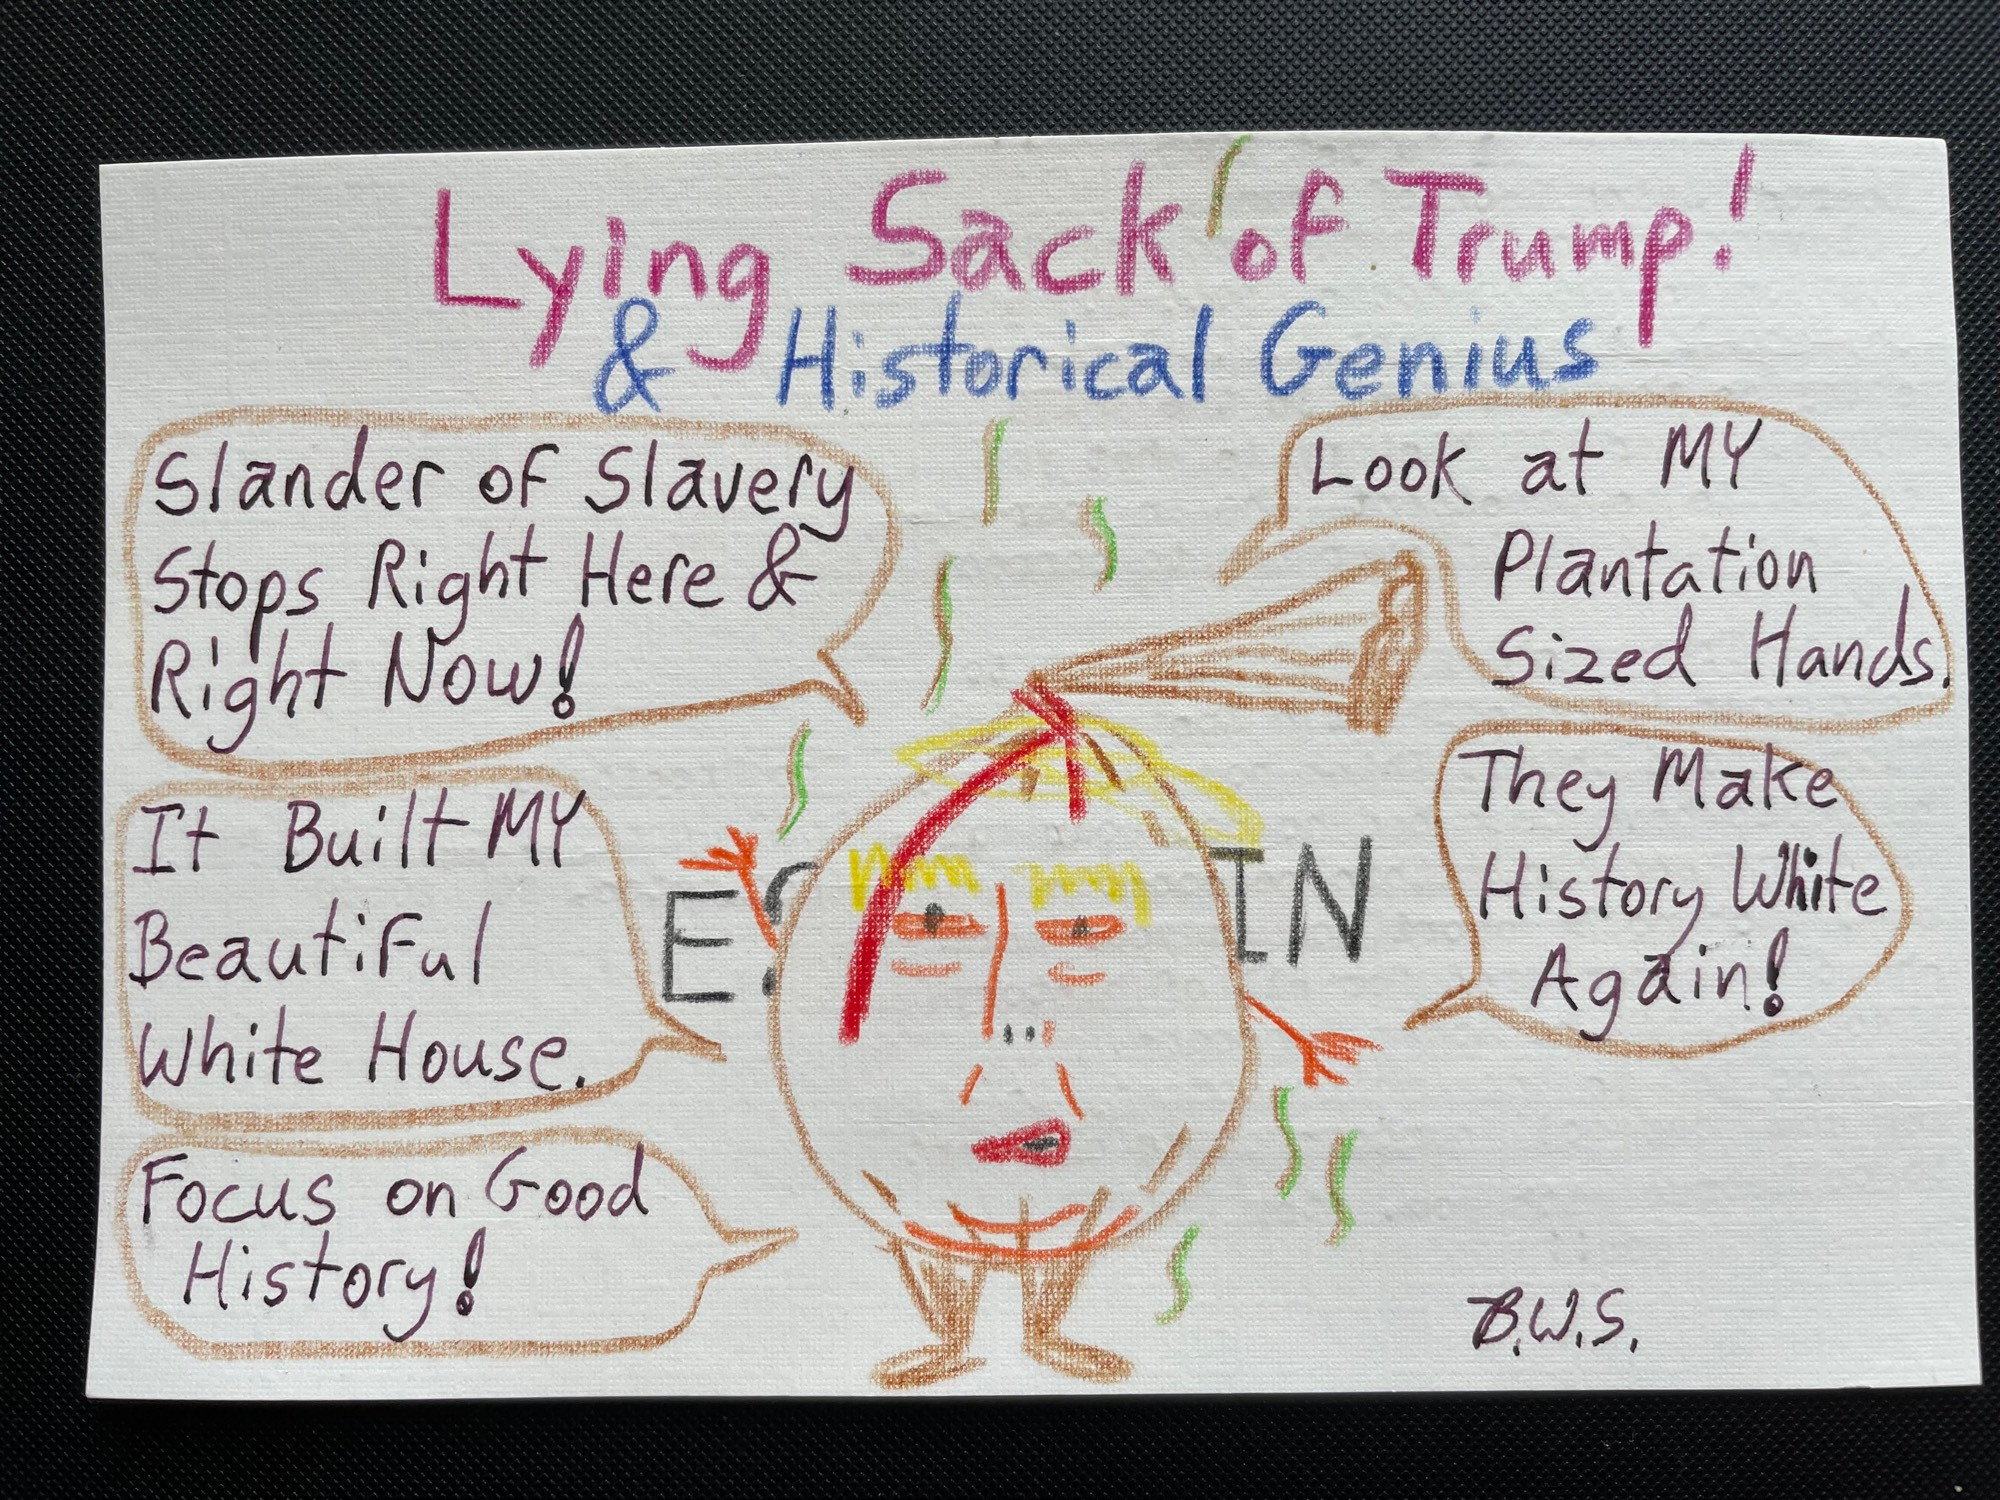 Lying Sack of Trump!
& Historical Genius
Slander of Slavery
Stops Right Here &
Right Now!
Look at MY
Plantation
Sized Hands.
It Built MY
Beautiful
White House.
They Make
History White
Again!
Focus on Good
History!
B.W.S.